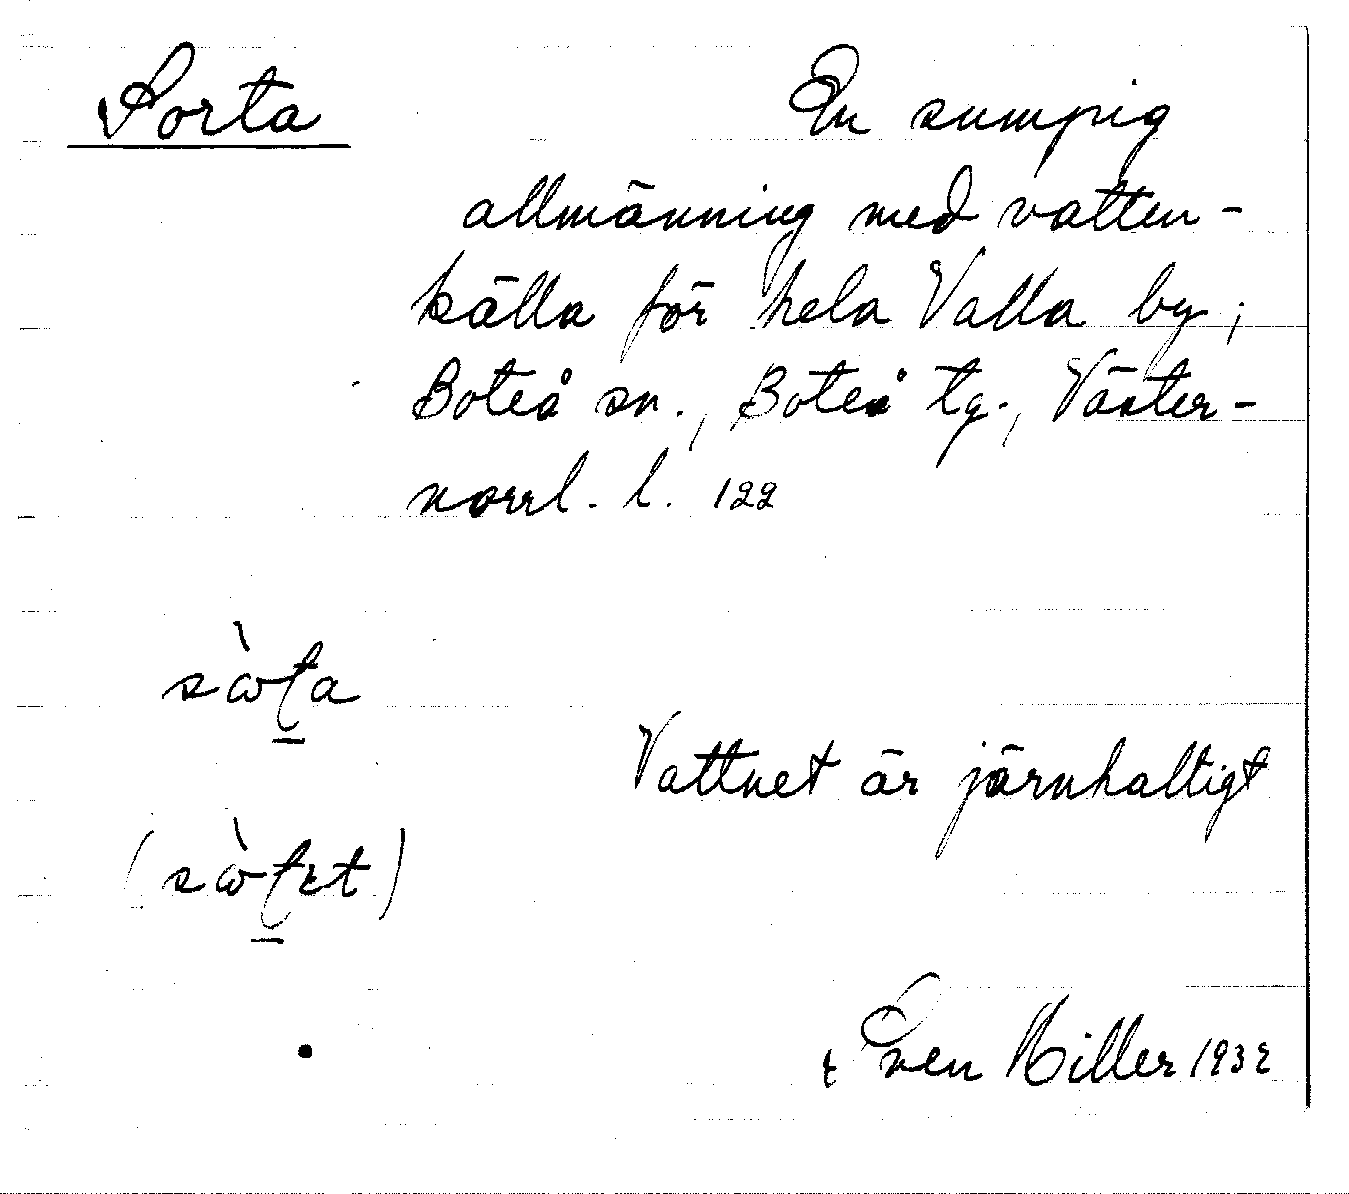 Sorta
En sumpig
allmänning med vatten-
källa för hela Valla by;
Boteå sn., Boteå tg., Väster-
norrl. l. 122
sὼʈa
Vattnet är järnhaltigt
(sὼʈɛt)
Sven Hiller 1932